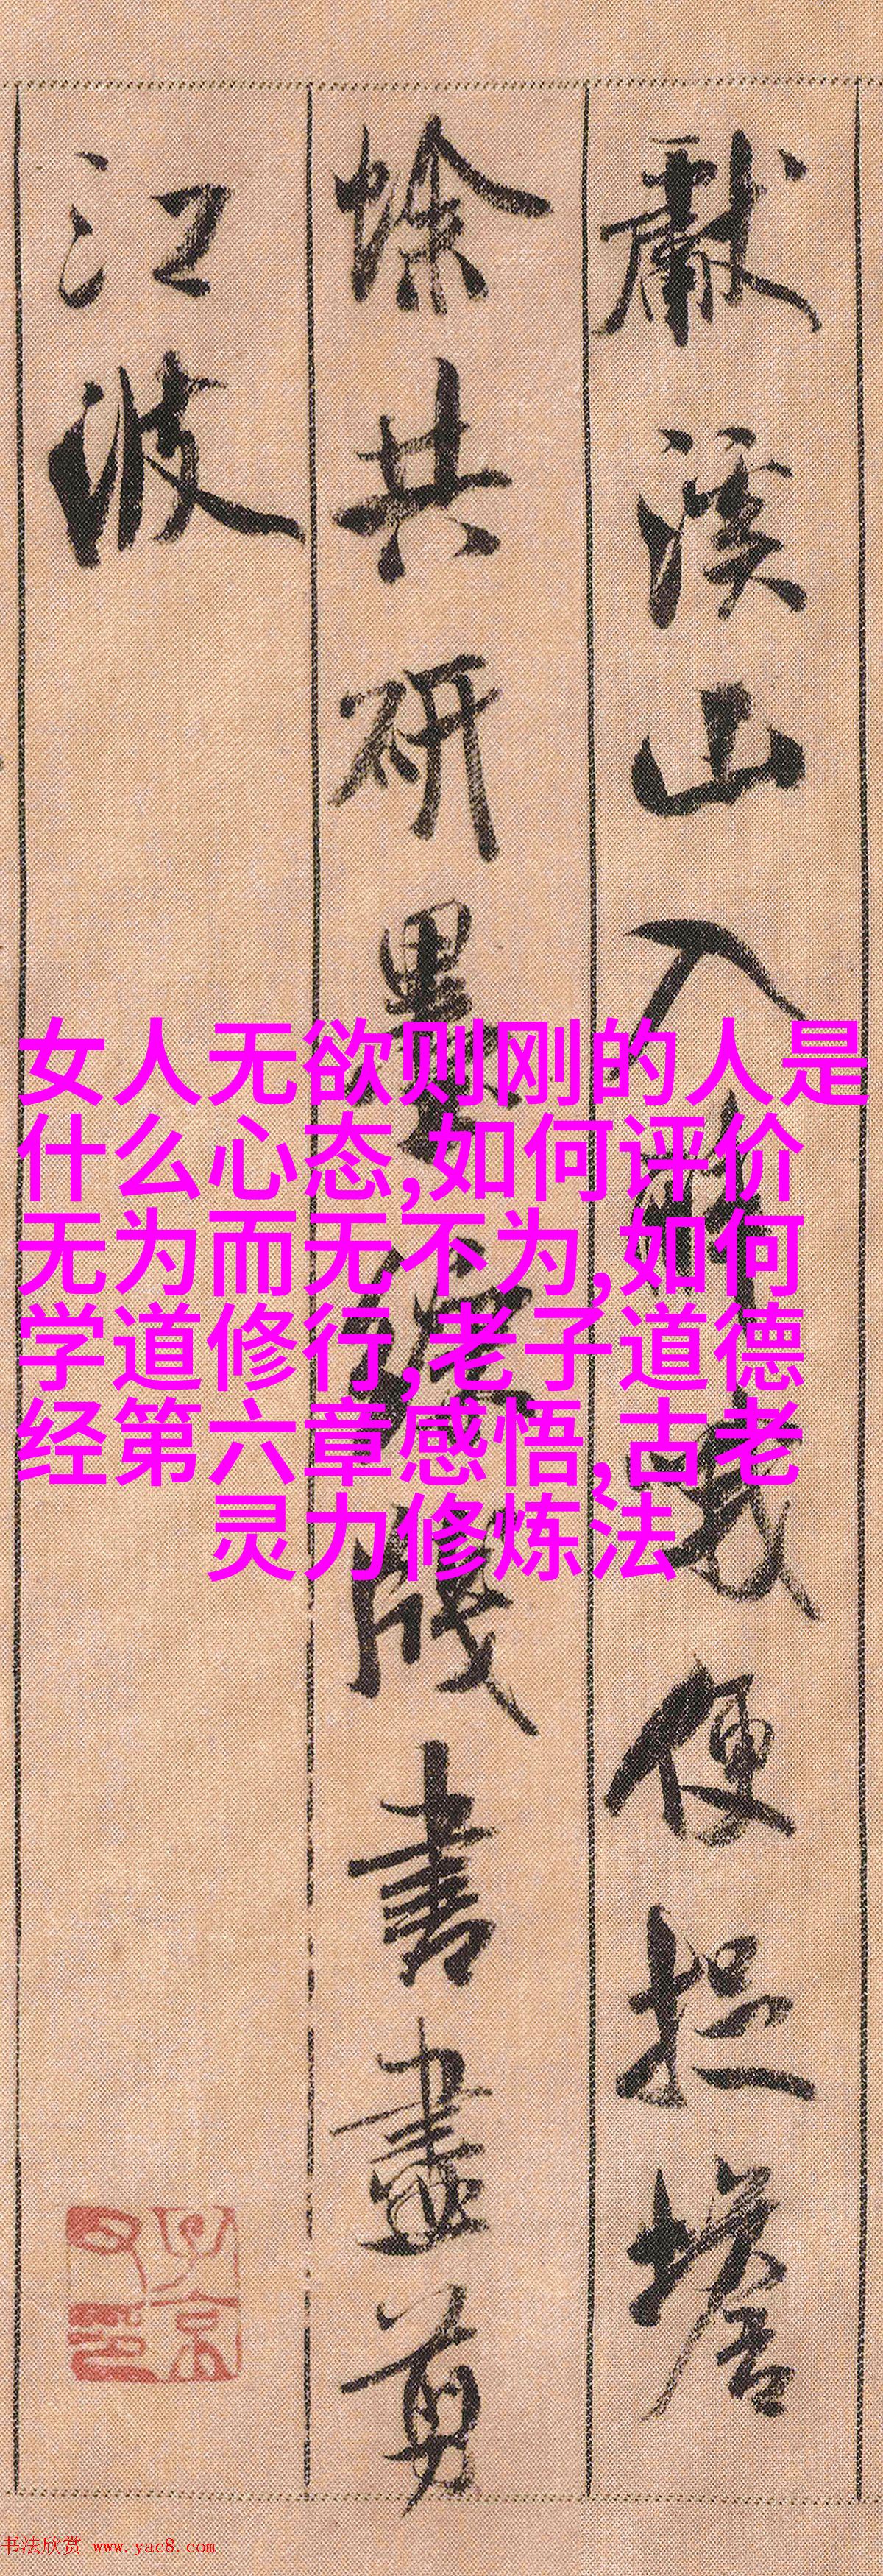 獻溪山入醉哦便捉蟾
蜍共研墨綵牋書盡剪
江波
女人无欲则刚的人是
什么心态,如何评价
无为而无不为,如何
学道修行,老子道德
经第六章感悟,古老
灵力修炼法
书法欣赏 www.yac8.com